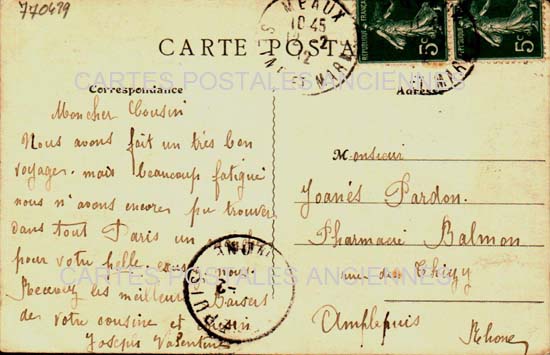 770439
MEAUX
10 45
12
Sᵗ MARNE
5c
5c
CARTE POSTA
CARTES POSTALES ANCIENNES
Correspondance
Adresse
Mon cher Cousin
Nous avons fait un très bon
voyage. mais beaucoup fatigué
nous n'avons encores pu trouver
dans tout Paris un
pour votre belle nous.
Recevez les meilleurs Baisers
de votre cousine et cousin
Joseph Valentine
Monsieur
Joanés Pardon.
Pharmacie Balmon
rue de Thizy
Amplepuis
Rhone
CARTES POSTALES ANCIENNES